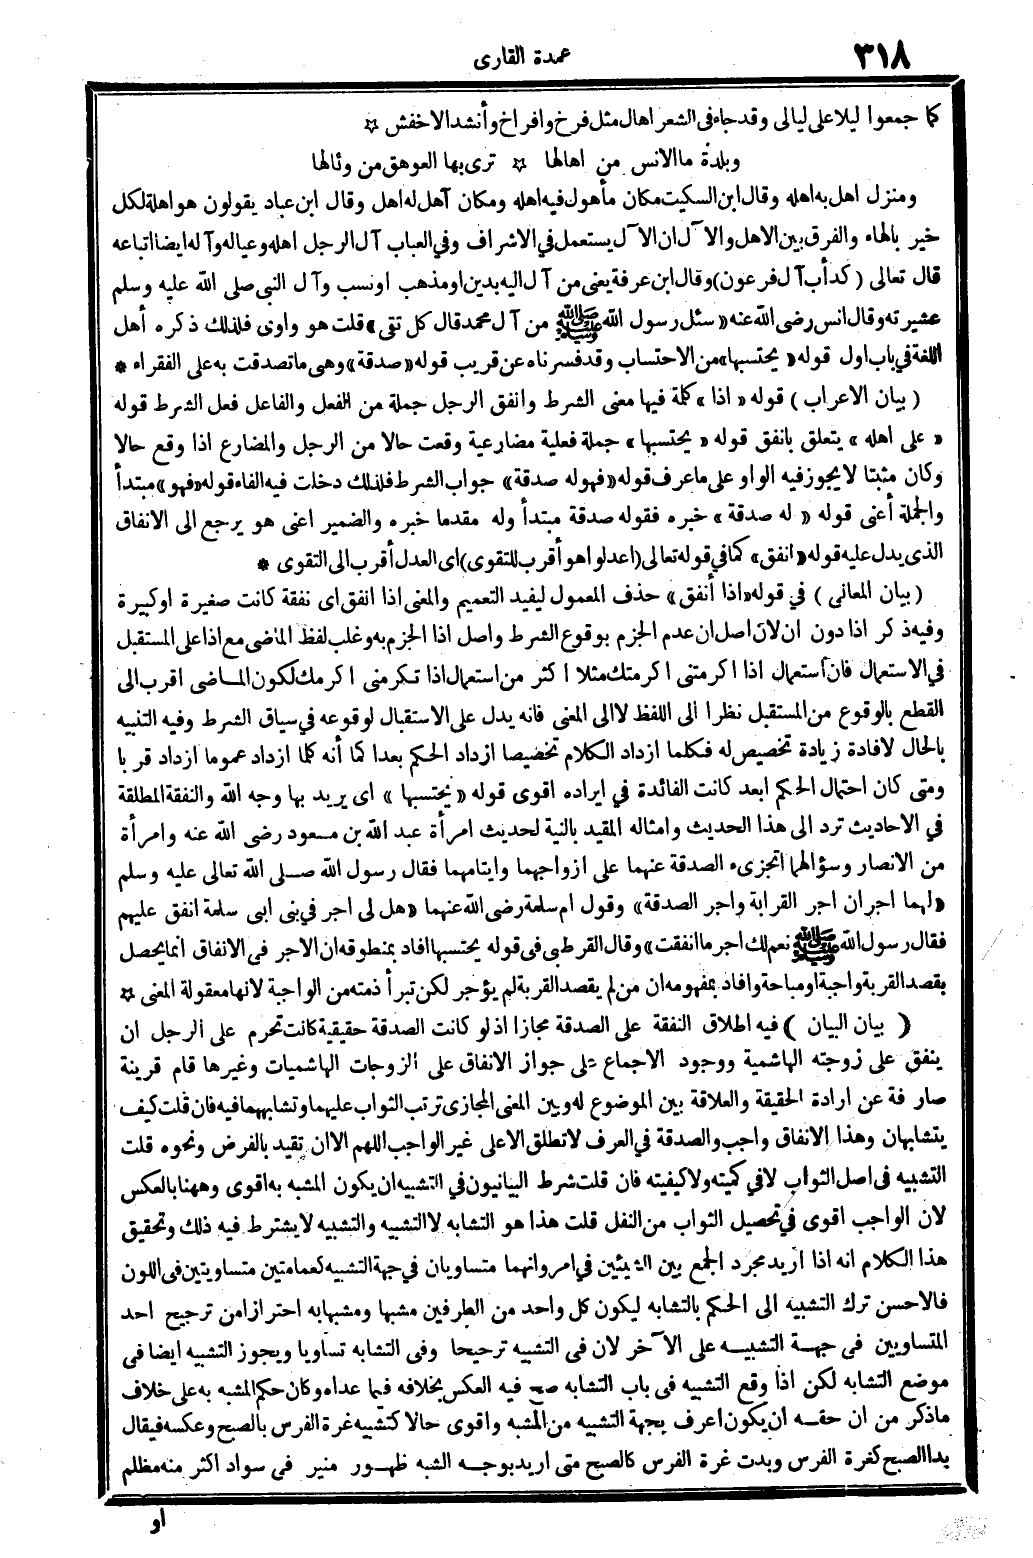 ٣١٨
عمدة القارى
كما جمعوا ليلا على ليالى وقد جاء فى الشعر اهال مثل فرخ وافراخ وأنشد الاخفش ☆
وبلدة ما الانس من اهالها ☆ ترى بها العوهق من وئالها
ومنزل اهل به اهله وقال ابن السكيت مكان مأهول فيه اهله ومكان آهل له اهل وقال ابن عباد يقولون هو اهلة لكل
خير بالهاء والفرق بين الاهل والآل ان الآل يستعمل في الاشراف وفي العباب آل الرجل اهله وعياله وآ له ايضا اتباعه
قال تعالى ( كدأب آل فرعون) وقال ابن عرفة يعنى من آل اليه بدين او مذهب او نسب وآل النبي صلى الله عليه وسلم
عشيرته وقال انس رضى الله عنه «سئل رسول الله ﷺ من آل محمد قال كل تقى» قلت هو واوى فلذلك ذكره أهل
اللغة في باب اول قوله «يحتسبها» من الاحتساب وقد فسرناه عن قريب قوله «صدقة» وهى ما تصدقت به على الفقراء *
( بيان الاعراب ) قوله «اذا» كلمة فيها معنى الشرط وانفق الرجل جملة من الفعل والفاعل فعل الشرط قوله
«على اهله» يتعلق بانفق قوله «يحتسبها» جملة فعلية مضارعية وقعت حالا من الرجل والمضارع اذا وقع حالا
وكان مثبتا لا يجوز فيه الواو على ما عرف قوله «فهو له صدقة» جواب الشرط فلذلك دخلت فيه الفاء قوله «فهو» مبتدأ
والجملة أعنى قوله «له صدقة» خبره فقوله صدقة مبتدأ وله مقدما خبره والضمير اعنى هو يرجع الى الانفاق
الذى يدل عليه قوله «انفق» كما في قوله تعالى (اعدلوا هو أقرب للتقوى) اى العدل أقرب الى التقوى *
( بيان المعانى ) في قوله «اذا أنفق» حذف المعمول ليفيد التعميم والمعنى اذا انفق اى نفقة كانت صغيرة او كبيرة
وفيه ذكر اذا دون ان لان اصل ان عدم الجزم بوقوع الشرط واصل اذا الجزم به وغلب لفظ الماضى مع اذا على المستقبل
في الاستعمال فان استعمال اذا اكرمتنى اكرمتك مثلا اكثر من استعمال اذا تكرمنى اكرمك لكون الماضى اقرب الى
القطع بالوقوع من المستقبل نظرا الى اللفظ لا الى المعنى فانه يدل على الاستقبال لوقوعه في سياق الشرط وفيه التنبيه
بالحال لافادة زيادة تخصيص له فكلما ازداد الكلام تخصيصا ازداد الحكم بعدا كما أنه كلما ازداد عموما ازداد قربا
ومتى كان احتمال الحكم ابعد كانت الفائدة في ايراده اقوى قوله «يحتسبها» اى يريد بها وجه الله والنفقة المطلقة
في الاحاديث ترد الى هذا الحديث وامثاله المقيد بالنية لحديث امرأة عبد الله بن مسعود رضى الله عنه وامرأة
من الانصار وسؤالهما اتجزىء الصدقة عنهما على ازواجهما وايتامهما فقال رسول الله صلى الله تعالى عليه وسلم
«لهما اجران اجر القرابة واجر الصدقة» وقول ام سلمة رضى الله عنهما «هل لى اجر في بنى ابى سلمة انفق عليهم
فقال رسول الله ﷺ نعم لك اجر ما انفقت» وقال القرطبى فى قوله يحتسبها افاد بمنطوقه ان الاجر فى الانفاق انما يحصل
بقصد القربة واجبة او مباحة وافاد بمفهومه ان من لم يقصد القربة لم يؤجر لكن تبرأ ذمته من الواجبة لانها معقولة المعنى ☆
( بيان البيان ) فيه اطلاق النفقة على الصدقة مجازا اذ لو كانت الصدقة حقيقية كانت تحرم على الرجل ان
ينفق على زوجته الهاشمية ووجود الاجماع على جواز الانفاق على الزوجات الهاشميات وغيرها قام قرينة
صارفة عن ارادة الحقيقة والعلاقة بين الموضوع له وبين المعنى المجازى ترتب الثواب عليهما وتشابههما فيه فان قلت كيف
يتشابهان وهذا الانفاق واجب والصدقة في العرف لا تطلق الا على غير الواجب اللهم الا ان تقيد بالفرض ونحوه قلت
التشبيه فى اصل الثواب لا في كميته ولا كيفيته فان قلت شرط البيانيون في التشبيه ان يكون المشبه به اقوى وههنا بالعكس
لان الواجب اقوى في تحصيل الثواب من النفل قلت هذا هو التشابه لا التشبيه والتشبيه لا يشترط فيه ذلك وتحقيق
هذا الكلام انه اذا اريد مجرد الجمع بين الشيئين في امر وانهما متساويان في جهة التشبيه كعمامتين متساويتين فى اللون
فالاحسن ترك التشبيه الى الحكم بالتشابه ليكون كل واحد من الطرفين مشبها ومشبها به احترازا من ترجيح احد
المتساويين فى جهة التشبيه على الآخر لان فى التشبيه ترجيحا وفى التشابه تساويا ويجوز التشبيه ايضا فى
موضع التشابه لكن اذا وقع التشبيه فى باب التشابه صح فيه العكس بخلافه فيما عداه وكان حكم المشبه به على خلاف
ماذكر من ان حقه ان يكون اعرف بجهة التشبيه من المشبه واقوى حالا كتشبيه غرة الفرس بالصبح وعكسه فيقال
بدا الصبح كغرة الفرس وبدت غرة الفرس كالصبح متى اريد بوجه الشبه ظهور منير فى سواد اكثر منه مظلم
او